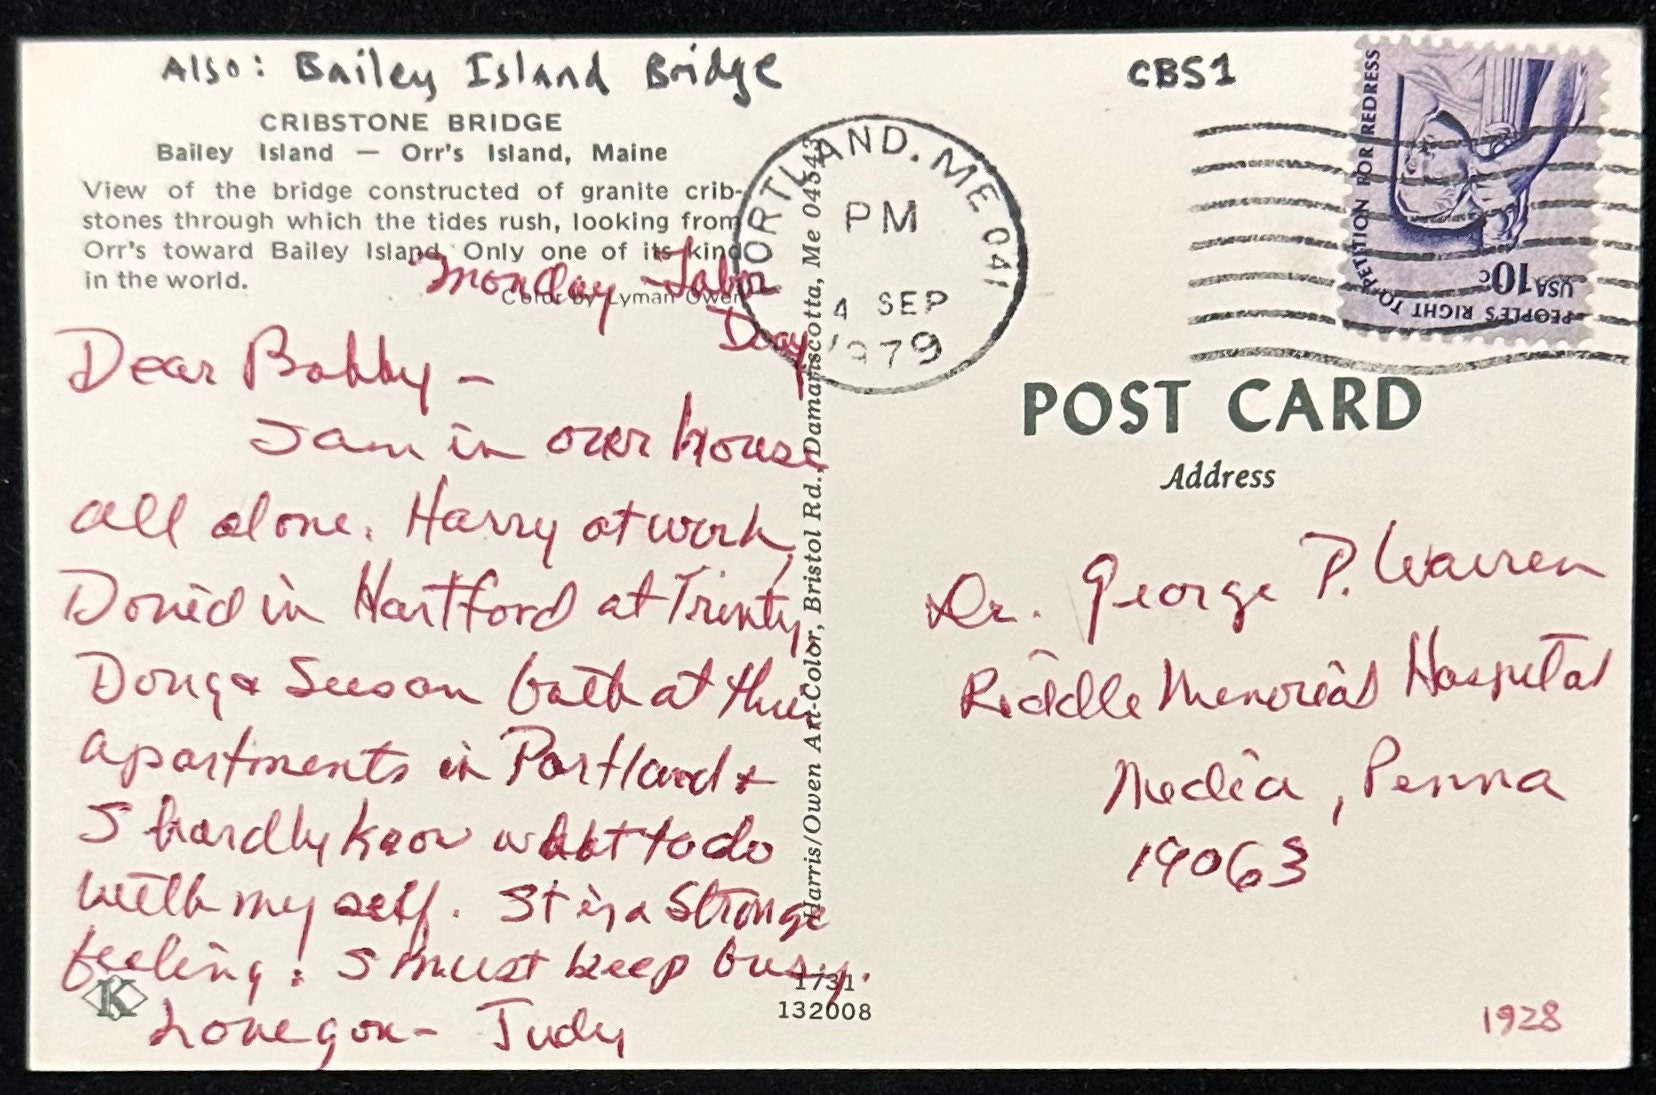 Also: Bailey Island Bridge
CRIBSTONE BRIDGE
Bailey Island — Orr's Island, Maine
View of the bridge constructed of granite crib-
stones through which the tides rush, looking from
Orr's toward Bailey Island. Only one of its kind
in the world.
Color by Lyman Owen
Monday - Labor
Day
Dear Bobby -
I am in our house
all alone. Harry at work,
David in Hartford at Trinty,
Doug & Susan both at their
apartments in Portland &
I hardly know what to do
with my self. It is a strange
feeling! I must keep busy.
Love you - Judy
K
Harris/Owen Art-Color, Bristol Rd., Damariscotta, Me 04543
1731
132008
CBS1
PORTLAND, ME 041
PM
4 SEP
1979
PEOPLE'S RIGHT TO PETITION FOR REDRESS
USA 10c
POST CARD
Address
Dr. George P. Warren
Riddle Memorial Hospital
Media, Penna
19063
1928